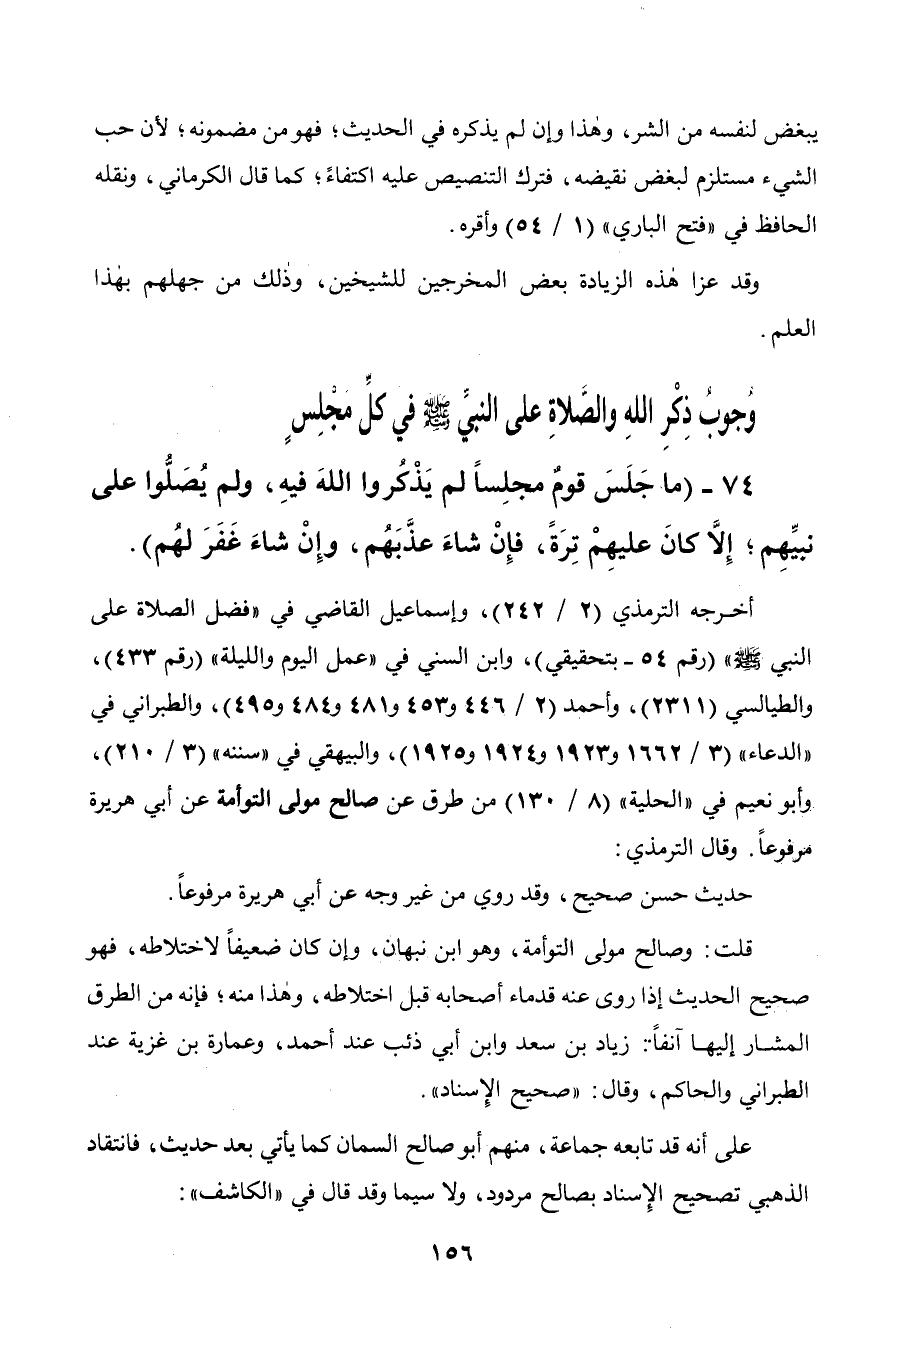 يبغض لنفسه من الشر، وهٰذا وإن لم يذكره في الحديث؛ فهو من مضمونه؛ لأن حب
الشيء مستلزم لبغض نقيضه، فترك التنصيص عليه اكتفاءً؛ كما قال الكرماني، ونقله
الحافظ في «فتح الباري» (١ / ٥٤) وأقره.
وقد عزا هٰذه الزيادة بعض المخرجين للشيخين، وذٰلك من جهلهم بهٰذا
العلم.
وُجوبُ ذِكْرِ اللهِ والصَّلاةِ على النبيِّ ﷺ في كلِّ مَجْلِسٍ
٧٤ ـ (ما جَلَسَ قومٌ مجلِساً لم يَذْكُروا اللهَ فيهِ، ولم يُصَلُّوا على
نبيِّهِم؛ إِلَّا كانَ عليهِمْ تِرَةً، فإِنْ شاءَ عذَّبَهُم، وإِنْ شاءَ غَفَرَ لهُم).
أخرجه الترمذي (٢ / ٢٤٢)، وإسماعيل القاضي في «فضل الصلاة على
النبي ﷺ» (رقم ٥٤ ـ بتحقيقي)، وابن السني في «عمل اليوم والليلة» (رقم ٤٣٣)،
والطيالسي (٢٣١١)، وأحمد (٢ / ٤٤٦ و٤٥٣ و٤٨١ و٤٨٤ و٤٩٥)، والطبراني في
«الدعاء» (٣ / ١٦٦٢ و١٩٢٣ و١٩٢٤ و١٩٢٥)، والبيهقي في «سننه» (٣ / ٢١٠)،
وأبو نعيم في «الحلية» (٨ / ١٣٠) من طرق عن صالح مولى التوأمة عن أبي هريرة
مرفوعاً. وقال الترمذي:
حديث حسن صحيح، وقد روي من غير وجه عن أبي هريرة مرفوعاً.
قلت: وصالح مولى التوأمة، وهو ابن نبهان، وإن كان ضعيفاً لاختلاطه، فهو
صحيح الحديث إذا روى عنه قدماء أصحابه قبل اختلاطه، وهٰذا منه؛ فإنه من الطرق
المشار إليها آنفاً: زياد بن سعد وابن أبي ذئب عند أحمد، وعمارة بن غزية عند
الطبراني والحاكم، وقال: «صحيح الإِسناد».
على أنه قد تابعه جماعة، منهم أبو صالح السمان كما يأتي بعد حديث، فانتقاد
الذهبي تصحيح الإِسناد بصالح مردود، ولا سيما وقد قال في «الكاشف»:
١٥٦